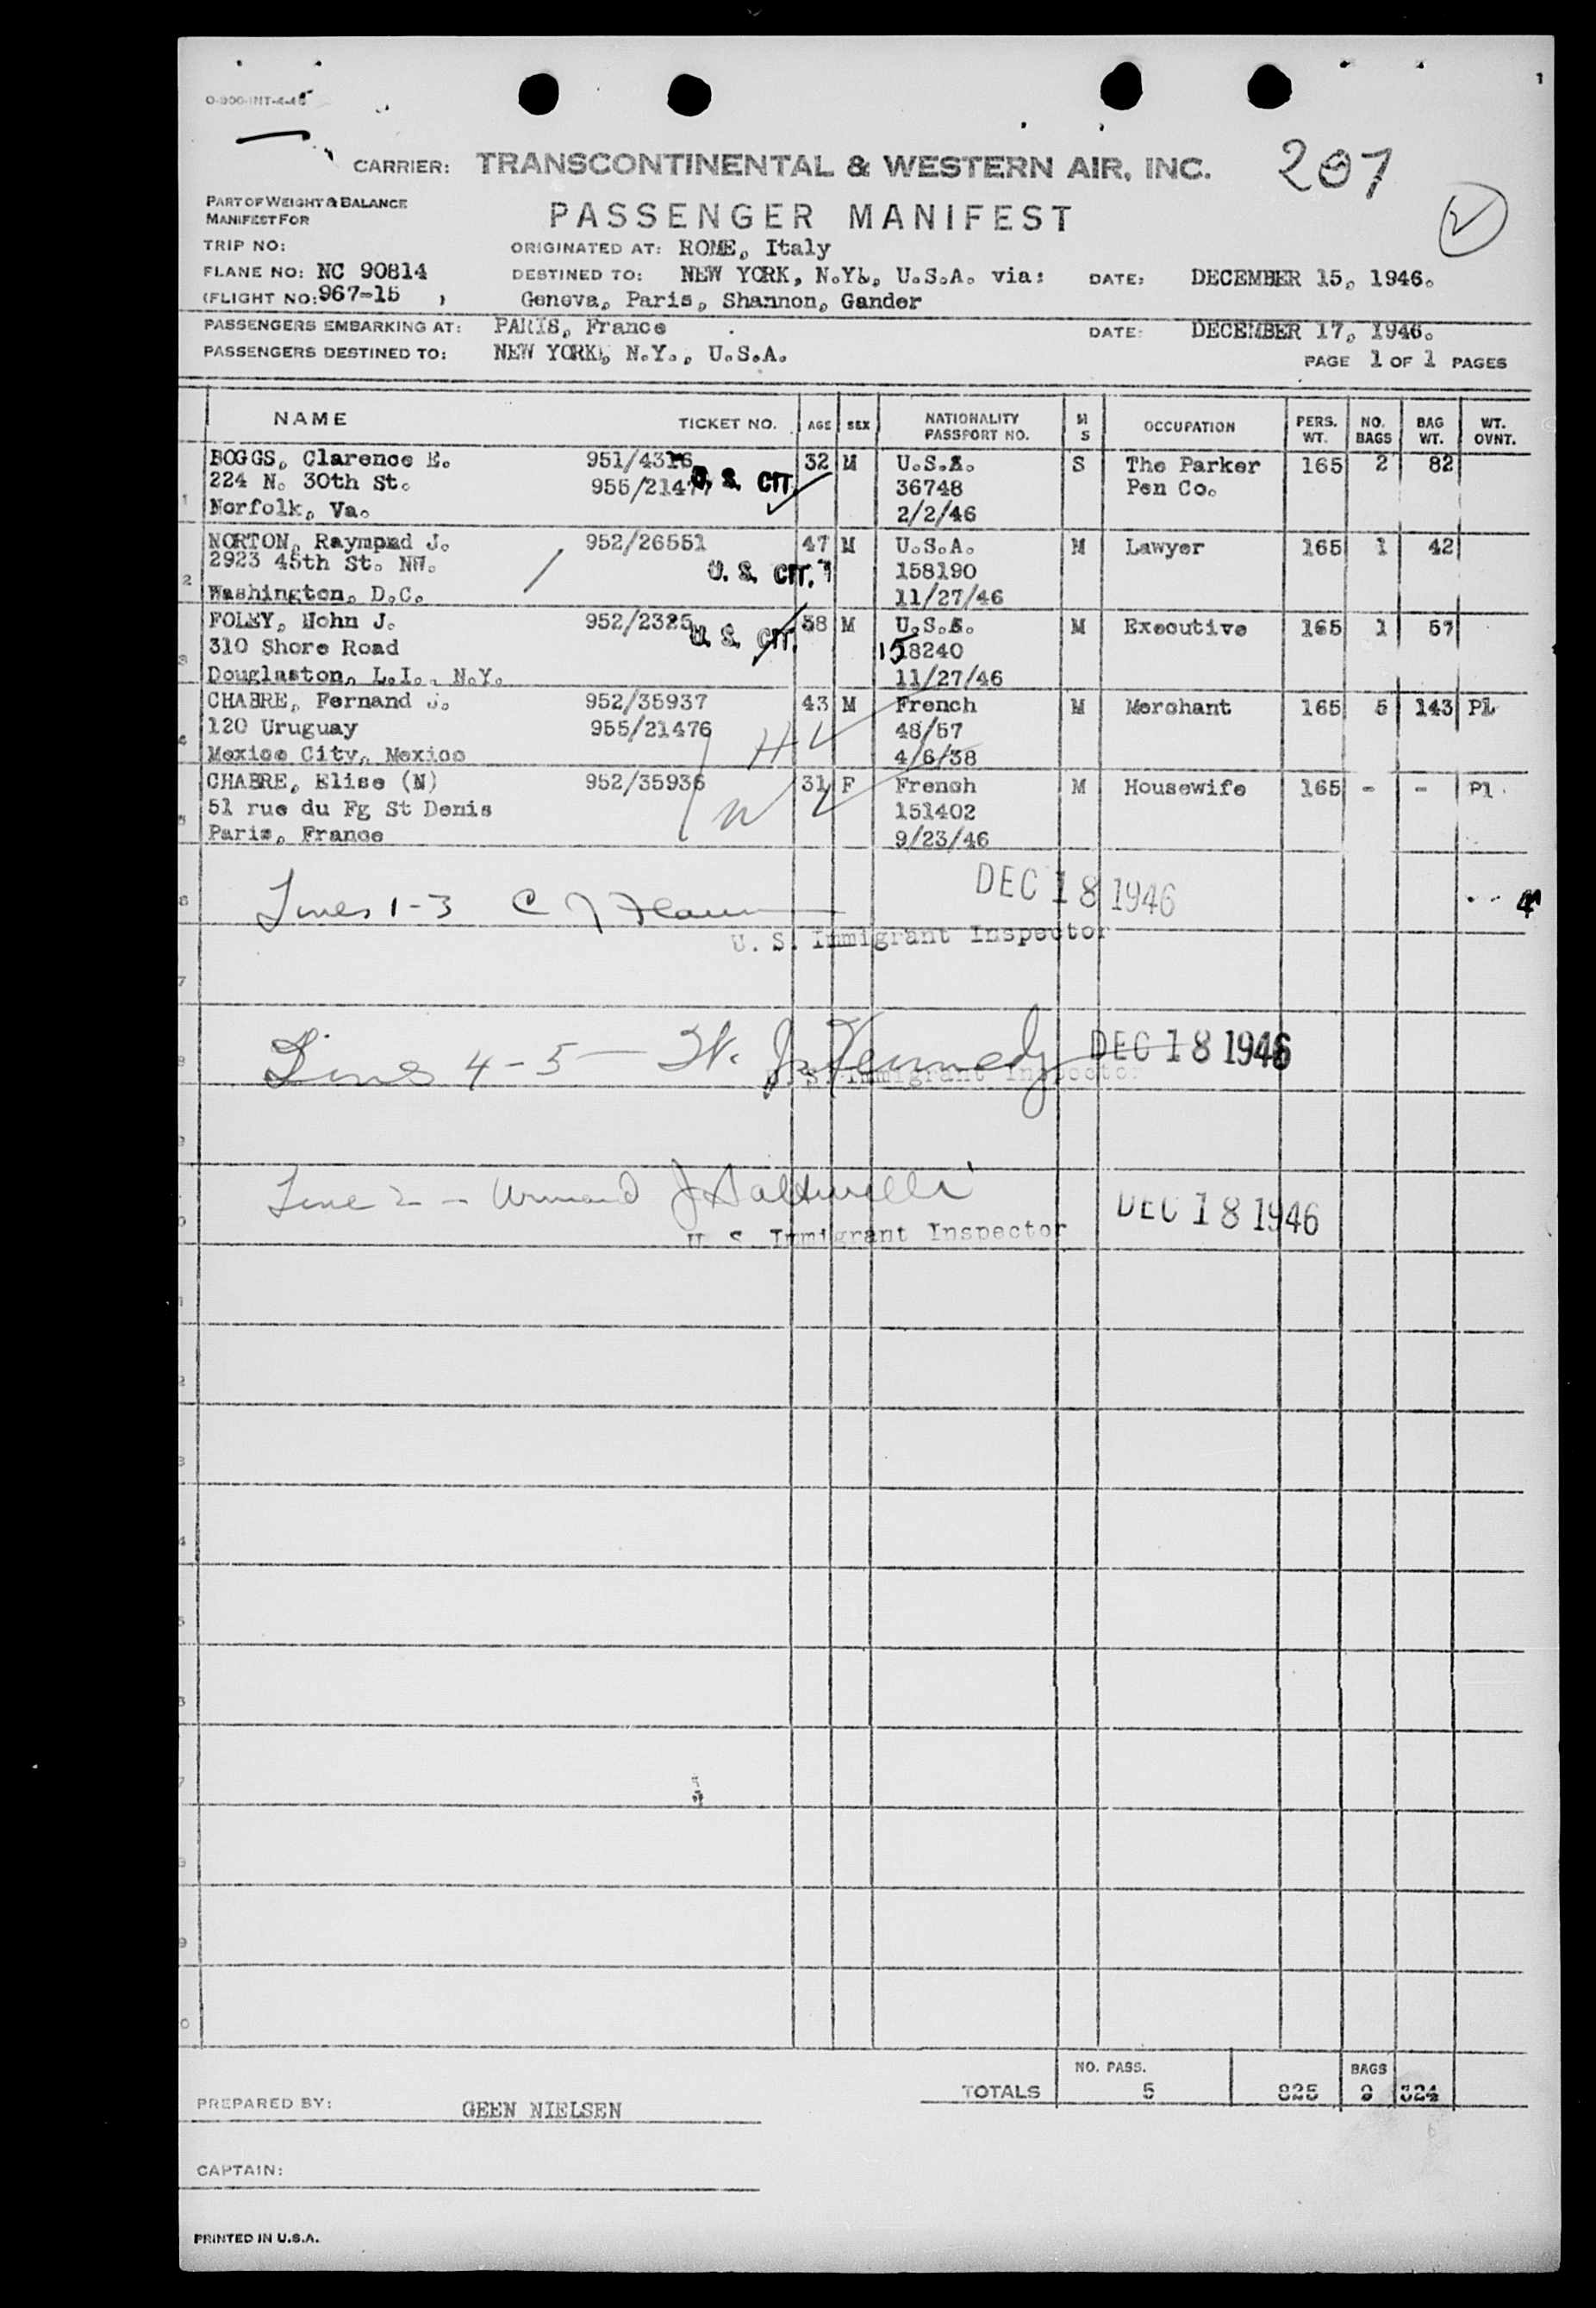 O-900-INT-4-46
1
CARRIER: TRANSCONTINENTAL & WESTERN AIR, INC. 207
PART OF WEIGHT & BALANCE
MANIFEST FOR
PASSENGER MANIFEST
TRIP NO: ORIGINATED AT: ROME, Italy
PLANE NO: NC 90814 DESTINED TO: NEW YORK, N.Y., U.S.A. via: DATE: DECEMBER 15, 1946.
(FLIGHT NO: 967-15 ) Geneva, Paris, Shannon, Gander
PASSENGERS EMBARKING AT: PARIS, France DATE: DECEMBER 17, 1946.
PASSENGERS DESTINED TO: NEW YORK, N.Y., U.S.A. PAGE 1 OF 1 PAGES
NAME TICKET NO. AGE SEX NATIONALITY PASSPORT NO. M S OCCUPATION PERS. WT. NO. BAGS BAG WT. WT. OVNT.
BOGGS, Clarence E. 951/4316 32 M U.S.A. S The Parker 165 2 82
224 N. 30th St. 955/21477 U. S. CIT. 36748 Pen Co.
1 Norfolk, Va. 2/2/46
NORTON, Raymond J. 952/26551 47 M U.S.A. M Lawyer 165 1 42
2923 45th St. NW. U. S. CIT. 158190
2 Washington, D.C. 11/27/46
FOLEY, Nohn J. 952/2325 U. S. CIT. 38 M U.S.A. M Executive 165 1 57
310 Shore Road 158240
3 Douglaston, L.I., N.Y. 11/27/46
CHABRE, Fernand J. 952/35937 43 M French M Merchant 165 5 143 Pl
120 Uruguay 955/21476 H 48/57
4 Mexico City, Mexico 4/6/38
CHABRE, Elise (N) 952/35936 31 F French M Housewife 165 - - Pl
51 rue du Fg St Denis W 151402
5 Paris, France 9/23/46
Lines 1-3 C J DEC 18 1946
U. S. Immigrant Inspector
Lines 4-5 — W. J. Kennedy DEC 18 1946
U. S. Immigrant Inspector
Line 2 — Armand J DEC 18 1946
U. S. Immigrant Inspector
NO. PASS. BAGS
TOTALS 5 825 9 324
PREPARED BY: GEEN NIELSEN
CAPTAIN:
PRINTED IN U.S.A.